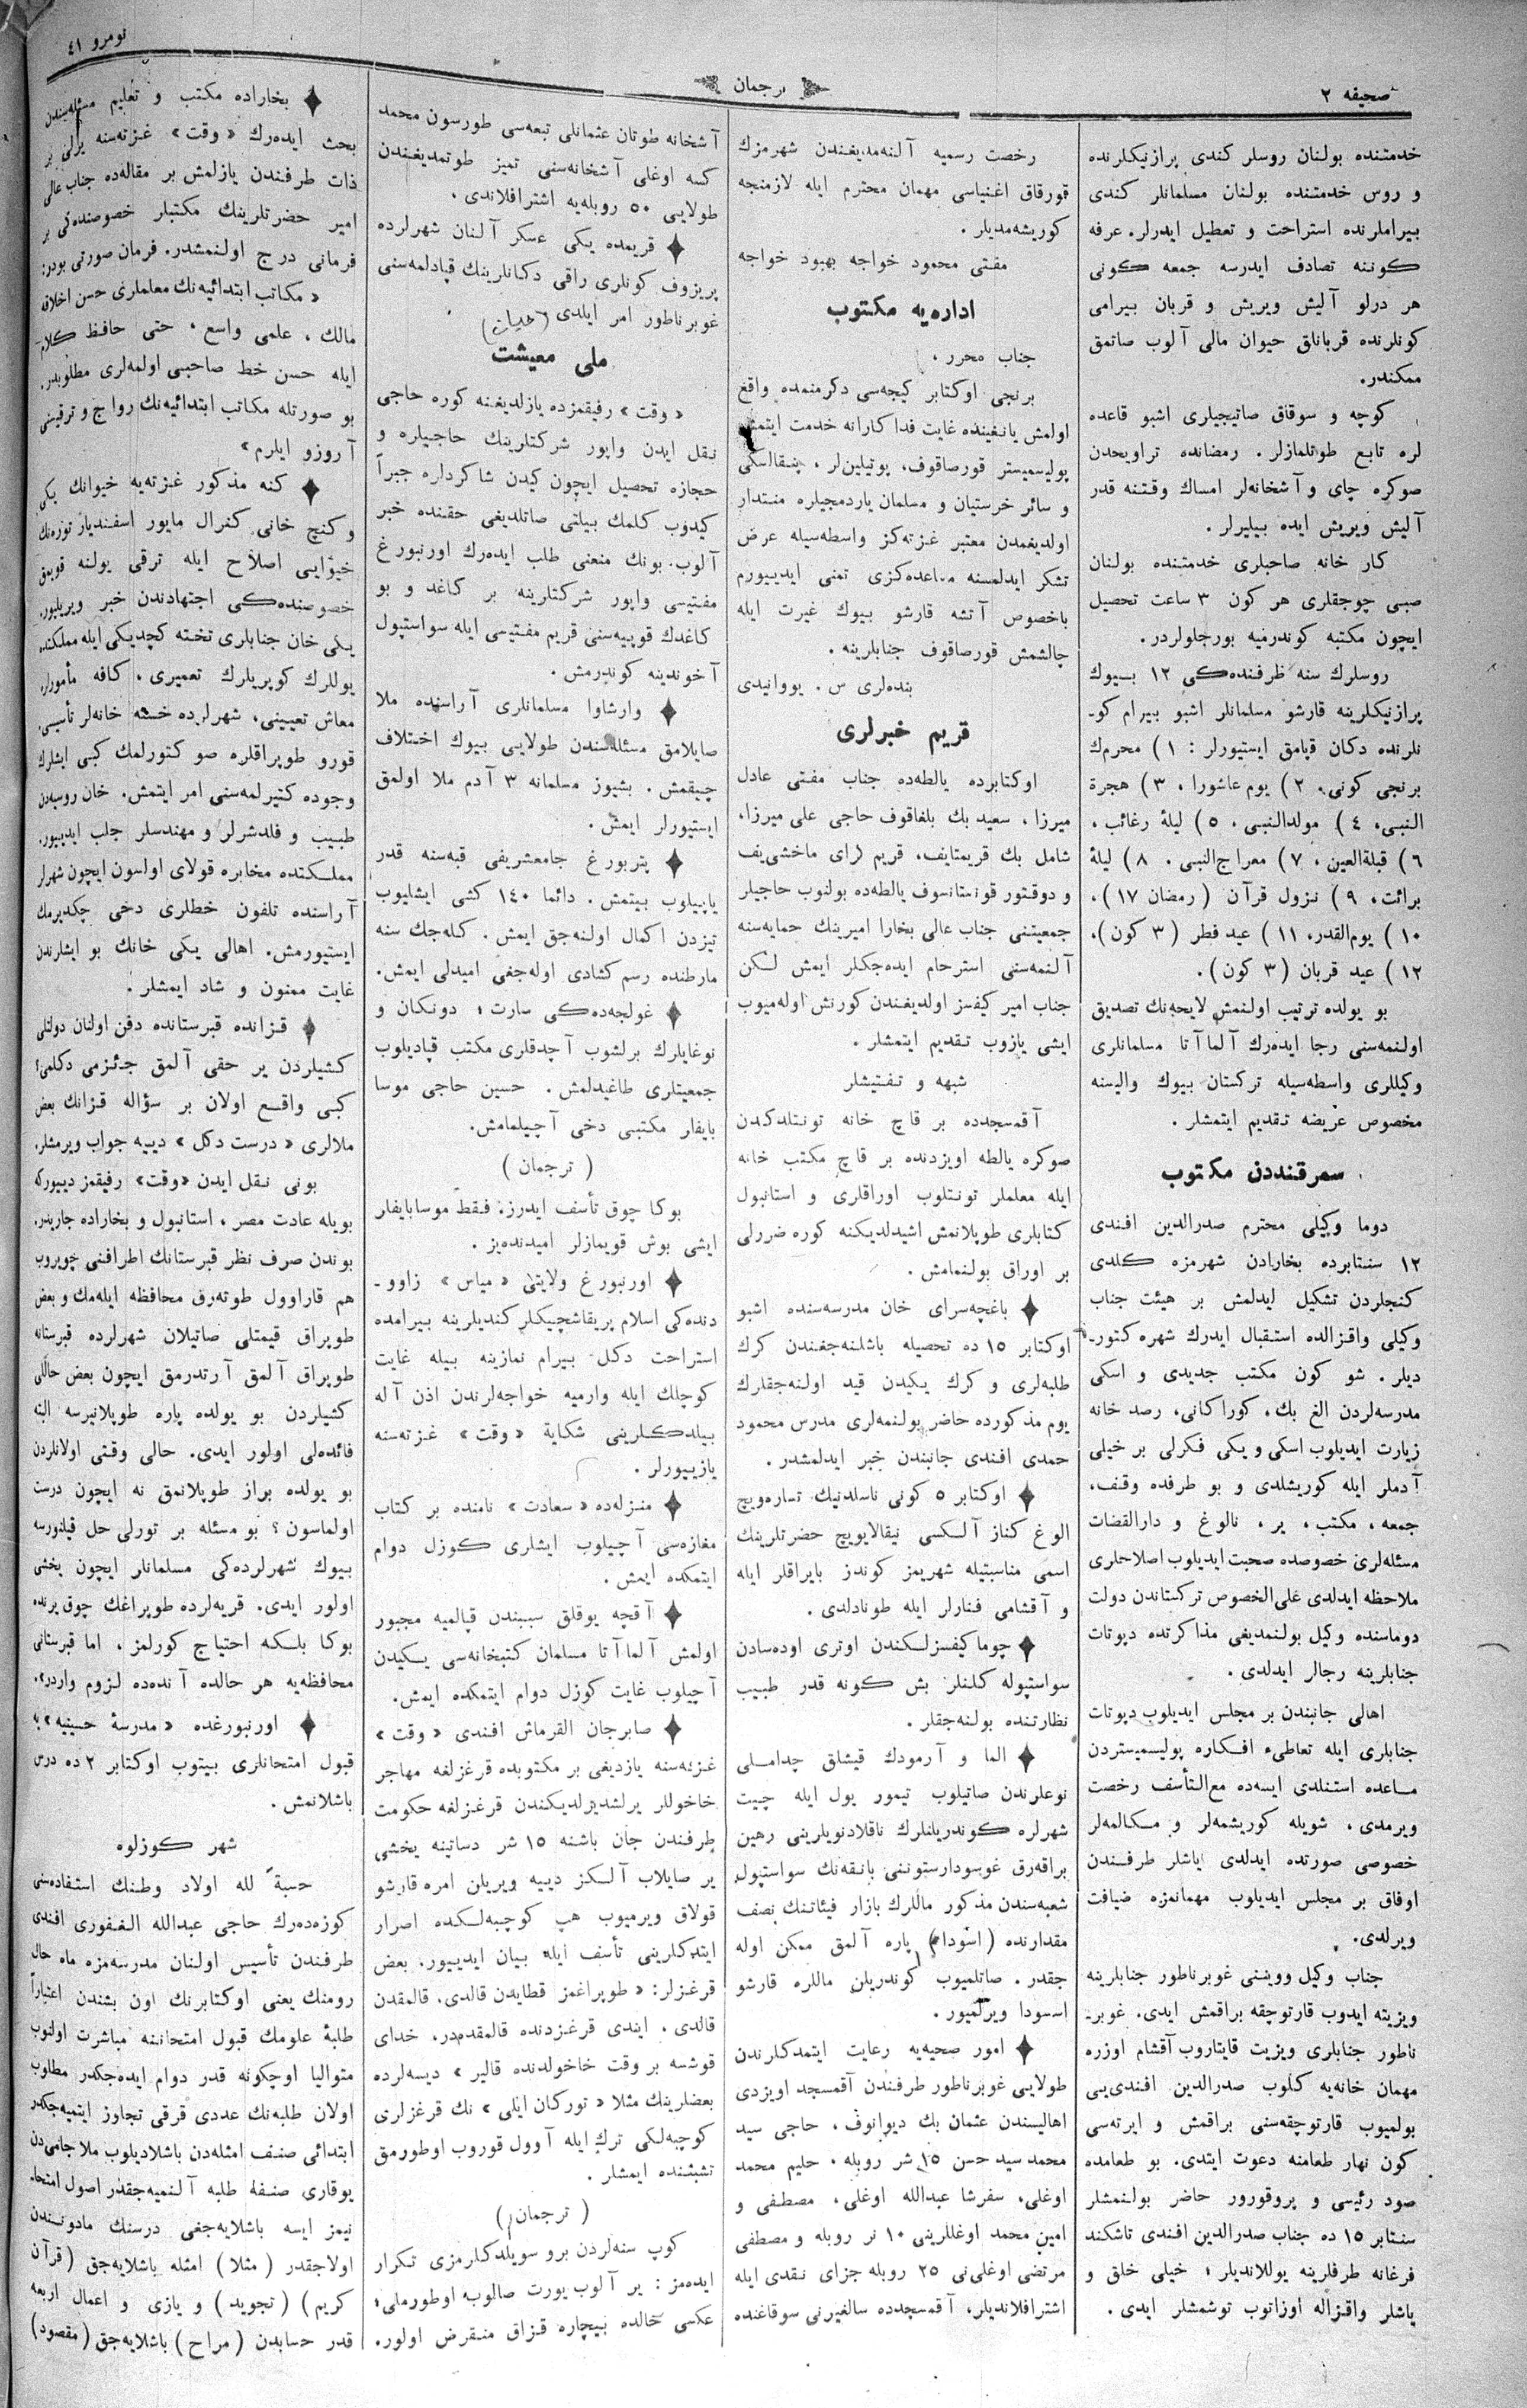 صحیفه ٢
ترجمان
نومرو ٤١
خدمتنده بولنان روسلر کندی پرازنیکلرنده
و روس خدمتنده بولنان مسلمانلر کندی
بیراملرنده استراحت و تعطیل ایدرلر. عرفه
کوننه تصادف ایدرسه جمعه کونی
هر درلو آلیش ویریش و قربان بیرامی
کونلرنده قربانلق حیوان مالی آلوب صاتمق
ممکندر.
کوچه و سوقاق صاتیجیلری اشبو قاعده
لره تابع طوتلمازلر. رمضانده تراویحدن
صوکره چای و آشخانه‌لر امساك وقتنه قدر
آلیش ویریش ایده بیلیرلر.
کار خانه صاحبلری خدمتنده بولنان
صبی چوجقلری هر کون ٣ ساعت تحصیل
ایچون مکتبه کوندرمیه بورجلولردر.
روسلرك سنه ظرفنده‌کی ١٢ بیوك
پرازنیکلرینه قارشو مسلمانلر اشبو بیرام کو-
نلرنده دکان قپامق ایستیورلر: ١) محرم‌ك
برنجی کونی. ٢) یوم عاشورا، ٣) هجرة
النبی، ٤) مولدالنبی، ٥) لیلهٔ رغائب،
٦) قبلة‌العین، ٧) معراج‌النبی. ٨) لیلهٔ
برائت، ٩) نزول قرآن (رمضان ١٧)،
١٠) یوم‌القدر، ١١) عید فطر (٣ کون)،
١٢) عید قربان (٣ کون).
بو یولده ترتیب اولنمش لایحه‌نك تصدیق
اولنمه‌سنی رجا ایده‌رك آلما آتا مسلمانلری
وکیللری واسطه‌سیله ترکستان بیوك والیسنه
مخصوص عریضه تقدیم ایتمشلر.
سمرقنددن مکتوب
دوما وکیلی محترم صدرالدین افندی
١٢ سنتابرده بخارادن شهرمزه کلدی
کنجلردن تشکیل ایدلمش بر هیئت جناب
وکیلی واقزالده استقبال ایدرك شهره کتور-
دیلر. شو کون مکتب جدیدی و اسکی
مدرسه‌لردن الغ بك، کوراکانی، رصد خانه
زیارت ایدیلوب اسکی و یکی فکرلی بر خیلی
آدملر ایله کوریشلدی و بو طرفده وقف،
جمعه، مکتب، یر، نالوغ و دارالقضات
مسئله‌لری خصوصده صحبت ایدیلوب اصلاحلری
ملاحظه ایدلدی علی‌الخصوص ترکستاندن دولت
دوماسنده وکیل بولنمدیغی مذاکرتده دپوتات
جنابلرینه رجالر ایدلدی.
اهالی جانبندن بر مجلس ایدیلوب دپوتات
جنابلری ایله تعاطیء افکاره پولیسمیستردن
مساعده استنلدی ایسه‌ده مع‌التأسف رخصت
ویرمدی، شویله کوریشمه‌لر و مکالمه‌لر
خصوصی صورتده ایدلدی یاشلر طرفندن
اوفاق بر مجلس ایدیلوب مهمانمزه ضیافت
ویرلدی.
جناب وکیل ووینی غوبرناطور جنابلرینه
ویزیته ایدوب قارتوچقه براقمش ایدی. غوبر-
ناطور جنابلری ویزیت قایتاروب آقشام اوزره
مهمان خانه‌یه کلوب صدرالدین افندی‌یی
بولمیوب قارتوچقه‌سنی براقمش و ایرته‌سی
کون نهار طعامنه دعوت ایتدی. بو طعامده
صود رئیسی و پروقورور حاضر بولنمشلر
سنتابر ١٥ ده جناب صدرالدین افندی تاشکند
فرغانه طرفلرینه یوللاندیلر؛ خیلی خلق و
یاشلر واقزاله اوزاتوب توشمشلر ایدی.
رخصت رسمیه آلنه‌مدیغندن شهرمزك
قورقاق اغنیاسی مهمان محترم ایله لازمنجه
کوریشه‌مدیلر.
مفتی محمود خواجه بهبود خواجه
اداره‌یه مکتوب
جناب محرر،
برنجی اوکتابر کیجه‌سی دکرمنمده واقع
اولمش یانغینده غایت فداکارانه خدمت ایتمش
پولیسمیستر قورصاقوف، پوتیلین‌لر،
و سائر خرستیان و مسلمان یاردمجیلره منتدار
اولدیغمدن معتبر غزته‌کز واسطه‌سیله عرض
تشکر ایدلمسنه مساعده‌کزی تمنی ایدییورم
باخصوص آتشه قارشو بیوك غیرت ایله
چالشمش قورصاقوف جنابلرینه.
بنده‌لری س. یووانیدی
قریم خبرلری
اوکتابرده یالطه‌ده جناب مفتی عادل
میرزا، سعید بك بلغاقوف حاجی علی میرزا،
شامل بك قریمتایف، قریم رای ماخشی‌یف
و دوقتور قونستانسوف یالطه‌ده بولنوب حاجیلر
جمعیتنی جناب عالی بخارا امیرینك حمایه‌سنه
آلنمه‌سنی استرحام ایده‌جکلر ایمش لکن
جناب امیر کیفسز اولدیغندن کورنش اوله‌میوب
ایشی یازوب تقدیم ایتمشلر.
شبهه و تفتیشلر
آقمسجدده بر قاچ خانه تونتلدکدن
صوکره یالطه اویزدنده بر قاچ مکتب خانه
ایله معلملر تونتلوب اوراقلری و استانبول
کتابلری طوپلانمش اشیدلدیکنه کوره ضررلی
بر اوراق بولنمامش.
باغچه‌سرای خان مدرسه‌سنده اشبو
اوکتابر ١٥ ده تحصیله باشلنه‌جغندن کرك
طلبه‌لری و کرك یکیدن قید اولنه‌جقلرك
یوم مذکورده حاضر بولنمه‌لری مدرس محمود
حمدی افندی جانبندن خبر ایدلمشدر.
اوکتابر ٥ کونی ناسلدنیك تساره‌ویچ
الوغ کناز آلکسی نیقالایویچ حضرتلرینك
اسمی مناسبتیله شهریمز کوندز بایراقلر ایله
و آقشامی فنارلر ایله طونادلدی.
چوما کیفسزلکندن اوتری اوده‌سادن
سواستپوله کلنلر بش کونه قدر طبیب
نظارتنده بولنه‌جقلر.
الما و آرمودك قیشلق چداملی
نوعلرندن صاتیلوب تیمور یول ایله چیت
شهرلره کوندریلنلرك ناقلادنویلرینی رهین
براقه‌رق غوسودارستوننی بانقه‌نك سواستپول
شعبه‌سندن مذکور ماللرك بازار فیئاتنك نصف
مقدارنده (اسودام) پاره آلمق ممکن اوله
جقدر. صاتلمیوب کوندریلن ماللره قارشو
اسسودا ویرلمیور.
امور صحیه‌یه رعایت ایتمدکلرندن
طولایی غوبرناطور طرفندن آقمسجد اویزدی
اهالیسندن عثمان بك دیوانوف، حاجی سید
محمد سید حسن ١٥ شر روبله، حلیم محمد
اوغلی، سفرشا عبدالله اوغلی، مصطفی و
امین محمد اوغللرینی ١٠ نر روبله و مصطفی
مرتضی اوغلی‌نی ٢٥ روبله جزای نقدی ایله
اشترافلاندیلر، آقمسجدده سالغیرنی سوقاغنده
آشخانه طوتان عثمانلی تبعه‌سی طورسون محمد
کسه اوغلی آشخانه‌سنی تمیز طوتمدیغندن
طولایی ٥٠ روبله‌یه اشترافلاندی.
قریمده یکی عسکر آلنان شهرلرده
پریزوف کونلری راقی دکانلرینك قپادلمه‌سنی
غوبرناطور امر ایلدی
ملی معیشت
«وقت» رفیقمزده یازلدیغنه کوره حاجی
نقل ایدن واپور شرکتلرینك حاجیلره و
حجازه تحصیل ایچون کیدن شاکردلره جبراً
کیدوب کلمك بیلتی صاتلدیغی حقنده خبر
آلوب. بونك منعنی طلب ایده‌رك اورنبورغ
مفتیسی واپور شرکتلرینه بر کاغد و بو
کاغدك قوپیه‌سنی قریم مفتیسی ایله سواستپول
آخوندینه کوندرمش.
وارشاوا مسلمانلری آراسنده ملا
صایلامق مسئله‌سندن طولایی بیوك اختلاف
چیقمش. بشیوز مسلمانه ٣ آدم ملا اولمق
ایستیورلر ایمش.
پتربورغ جامعشریفی قبه‌سنه قدر
یاپیلوب بیتمش. دائما ١٤٠ کشی ایشلیوب
تیزدن اکمال اولنه‌جق ایمش. کله‌جك سنه
مارطنده رسم کشادی اوله‌جغی امیدلی ایمش.
غولجه‌ده‌کی سارت، دونکان و
نوغایلرك برلشوب آچدقلری مکتب قپادیلوب
جمعیتلری طاغیدلمش. حسین حاجی موسا
بایفلر مکتبی دخی آچیلمامش.
(ترجمان)
بوکا چوق تأسف ایدرز. فقط موسابایفلر
ایشی بوش قویمازلر امیدنده‌یز.
اورنبورغ ولایتی «میاس» زاوو-
دنده‌کی اسلام پریقاشچیکلر کندیلرینه بیرامده
استراحت دکل بیرام نمازینه بیله غایت
کوچلك ایله وارمیه خواجه‌لرندن اذن آله
بیلدکلرینی شکایة «وقت» غزته‌سنه
یازییورلر.
منزله‌ده «سعادت» نامنده بر کتاب
مغازه‌سی آچیلوب ایشلری کوزل دوام
ایتمکده ایمش.
آقچه یوقلق سببندن قپالمیه مجبور
اولمش آلما آتا مسلمان کتبخانه‌سی یکیدن
آچیلوب غایت کوزل دوام ایتمکده ایمش.
صابرجان القرماش افندی «وقت»
غزته‌سنه یازدیغی بر مکتوبده قرغزلغه مهاجر
خاخوللر یرلشدیرلدیکندن قرغزلغه حکومت
طرفندن جان باشنه ١٥ شر دساتینه یخشی
یر صایلاب آلکز دییه ویریلن امره قارشو
قولاق ویرمیوب هپ کوچبه‌لکده اصرار
ایتدکلرینی تأسف ایله بیان ایدییور. بعض
قرغزلر: «طوپراغمز قطایدن قالدی، قالمقدن
قالدی، ایندی قرغزدنده قالمقدمدر، خدای
قوشسه بر وقت خاخولدنده قالیر» دیسه‌لرده
بعضلرینك مثلا «تورکان ایلی» نك قرغزلری
کوچبه‌لکی ترك ایله آوول قوروب اوطورمق
تشبثنده ایمشلر.
(ترجمان)
کوپ سنه‌لردن برو سویلدکلرمزی تکرار
ایده‌مز: یر آلوب یورت صالوب اوطورملی؛
عکسی حالده بیچاره قزاق منقرض اولور.
بخاراده مکتب و تعلیم مسئله‌سندن
بحث ایده‌رك «وقت» غزته‌سنه یرلی بر
ذات طرفندن یازلمش بر مقاله‌ده جناب عالی
امیر حضرتلرینك مکتبلر خصوصنده‌کی بر
فرمانی درج اولنمشدر. فرمان صورتی بودر:
«مکاتب ابتدائیه‌نك معلملری حسن اخلاقه
مالك، علمی واسع، حتی حافظ کلام
ایله حسن خط صاحبی اولمه‌لری مطلوبدر.
بو صورتله مکاتب ابتدائیه‌نك رواج و ترقیسنی
آروزو ایلرم»
کنه مذکور غزته‌یه خیوانك یکی
و کنج خانی کنرال مایور اسفندیار توره‌نك
خیؤایی اصلاح ایله ترقی یولنه قویمق
خصوصنده‌کی اجتهادندن خبر ویریلیور.
یکی خان جنابلری تخته کچدیکی ایله مملکتده
یوللرك کوپریلرك تعمیری، کافه مأمورلره
معاش تعیینی، شهرلرده خسته خانه‌لر تأسیسی
قورو طوپراقلره صو کتورلمك کبی ایشلرك
وجوده کتیرلمه‌سنی امر ایتمش. خان روسیه‌دن
طبیب و فلدشرلر و مهندسلر جلب ایدییور.
مملکتده مخابره قولای اولسون ایچون شهرلر
آراسنده تلفون خطلری دخی چکدیرمك
ایستیورمش. اهالی یکی خانك بو ایشلرندن
غایت ممنون و شاد ایمشلر.
قزانده قبرستانده دفن اولنان دولتلی
کشیلردن یر حقی آلمق جائزمی دکلمی؟
کبی واقع اولان بر سؤاله قزانك بعض
ملالری «درست دکل» دییه جواب ویرمشلر.
بونی نقل ایدن «وقت» رفیقمز دییورکه
بویله عادت مصر، استانبول و بخاراده جاریدر.
بوندن صرف نظر قبرستانك اطرافنی چویروب
هم قاراوول طوته‌رق محافظه ایله‌مك و بعض
طوپراق قیمتلی صاتیلان شهرلرده قبرستانه
طوپراق آلمق آرتدرمق ایچون بعض حاللی
کشیلردن بو یولده پاره طوپلانیرسه البته
فائده‌لی اولور ایدی. حالی وقتی اولانلردن
بو یولده براز طوپلانمق نه ایچون درست
اولماسون؟ بو مسئله بر تورلی حل قیلنورسه
بیوك شهرلرده‌کی مسلمانلر ایچون یخشی
اولور ایدی. قریه‌لرده طوپراغك چوق یرنده
بوکا بلکه احتیاج کورلمز، اما قبرستانی
محافظه‌یه هر حالده آنده‌ده لزوم واردر.
اورنبورغده «مدرسهٔ حسینیه» یه
قبول امتحانلری بیتوب اوکتابر ٢ ده درس
باشلانمش.
شهر کوزلوه
حسبةً لله اولاد وطنك استفاده‌سنی
کوزه‌ده‌رك حاجی عبدالله الغفوری افندی
طرفندن تأسیس اولنان مدرسه‌مزه ماه حال
رومنك یعنی اوکتابرنك اون بشندن اعتباراً
طلبهٔ علومك قبول امتحاننه مباشرت اولنوب
متوالیا اوچکونه قدر دوام ایده‌جکدر مطلوب
اولان طلبه‌نك عددی قرقی تجاوز ایتمیه‌جکدر
ابتدائی صنف امثله‌دن باشلادیلوب ملا جامی‌دن
یوقاری صنفهٔ طلبه آلنمیه‌جقدر اصول امتحا-
نیمز ایسه باشلایه‌جغی درسنك مادونندن
اولاجقدر (مثلا) امثله باشلایه‌جق (قرآن
کریم) (تجوید) و یازی و اعمال اربعه
قدر حسابدن (مراح) باشلایه‌جق (مقصود)